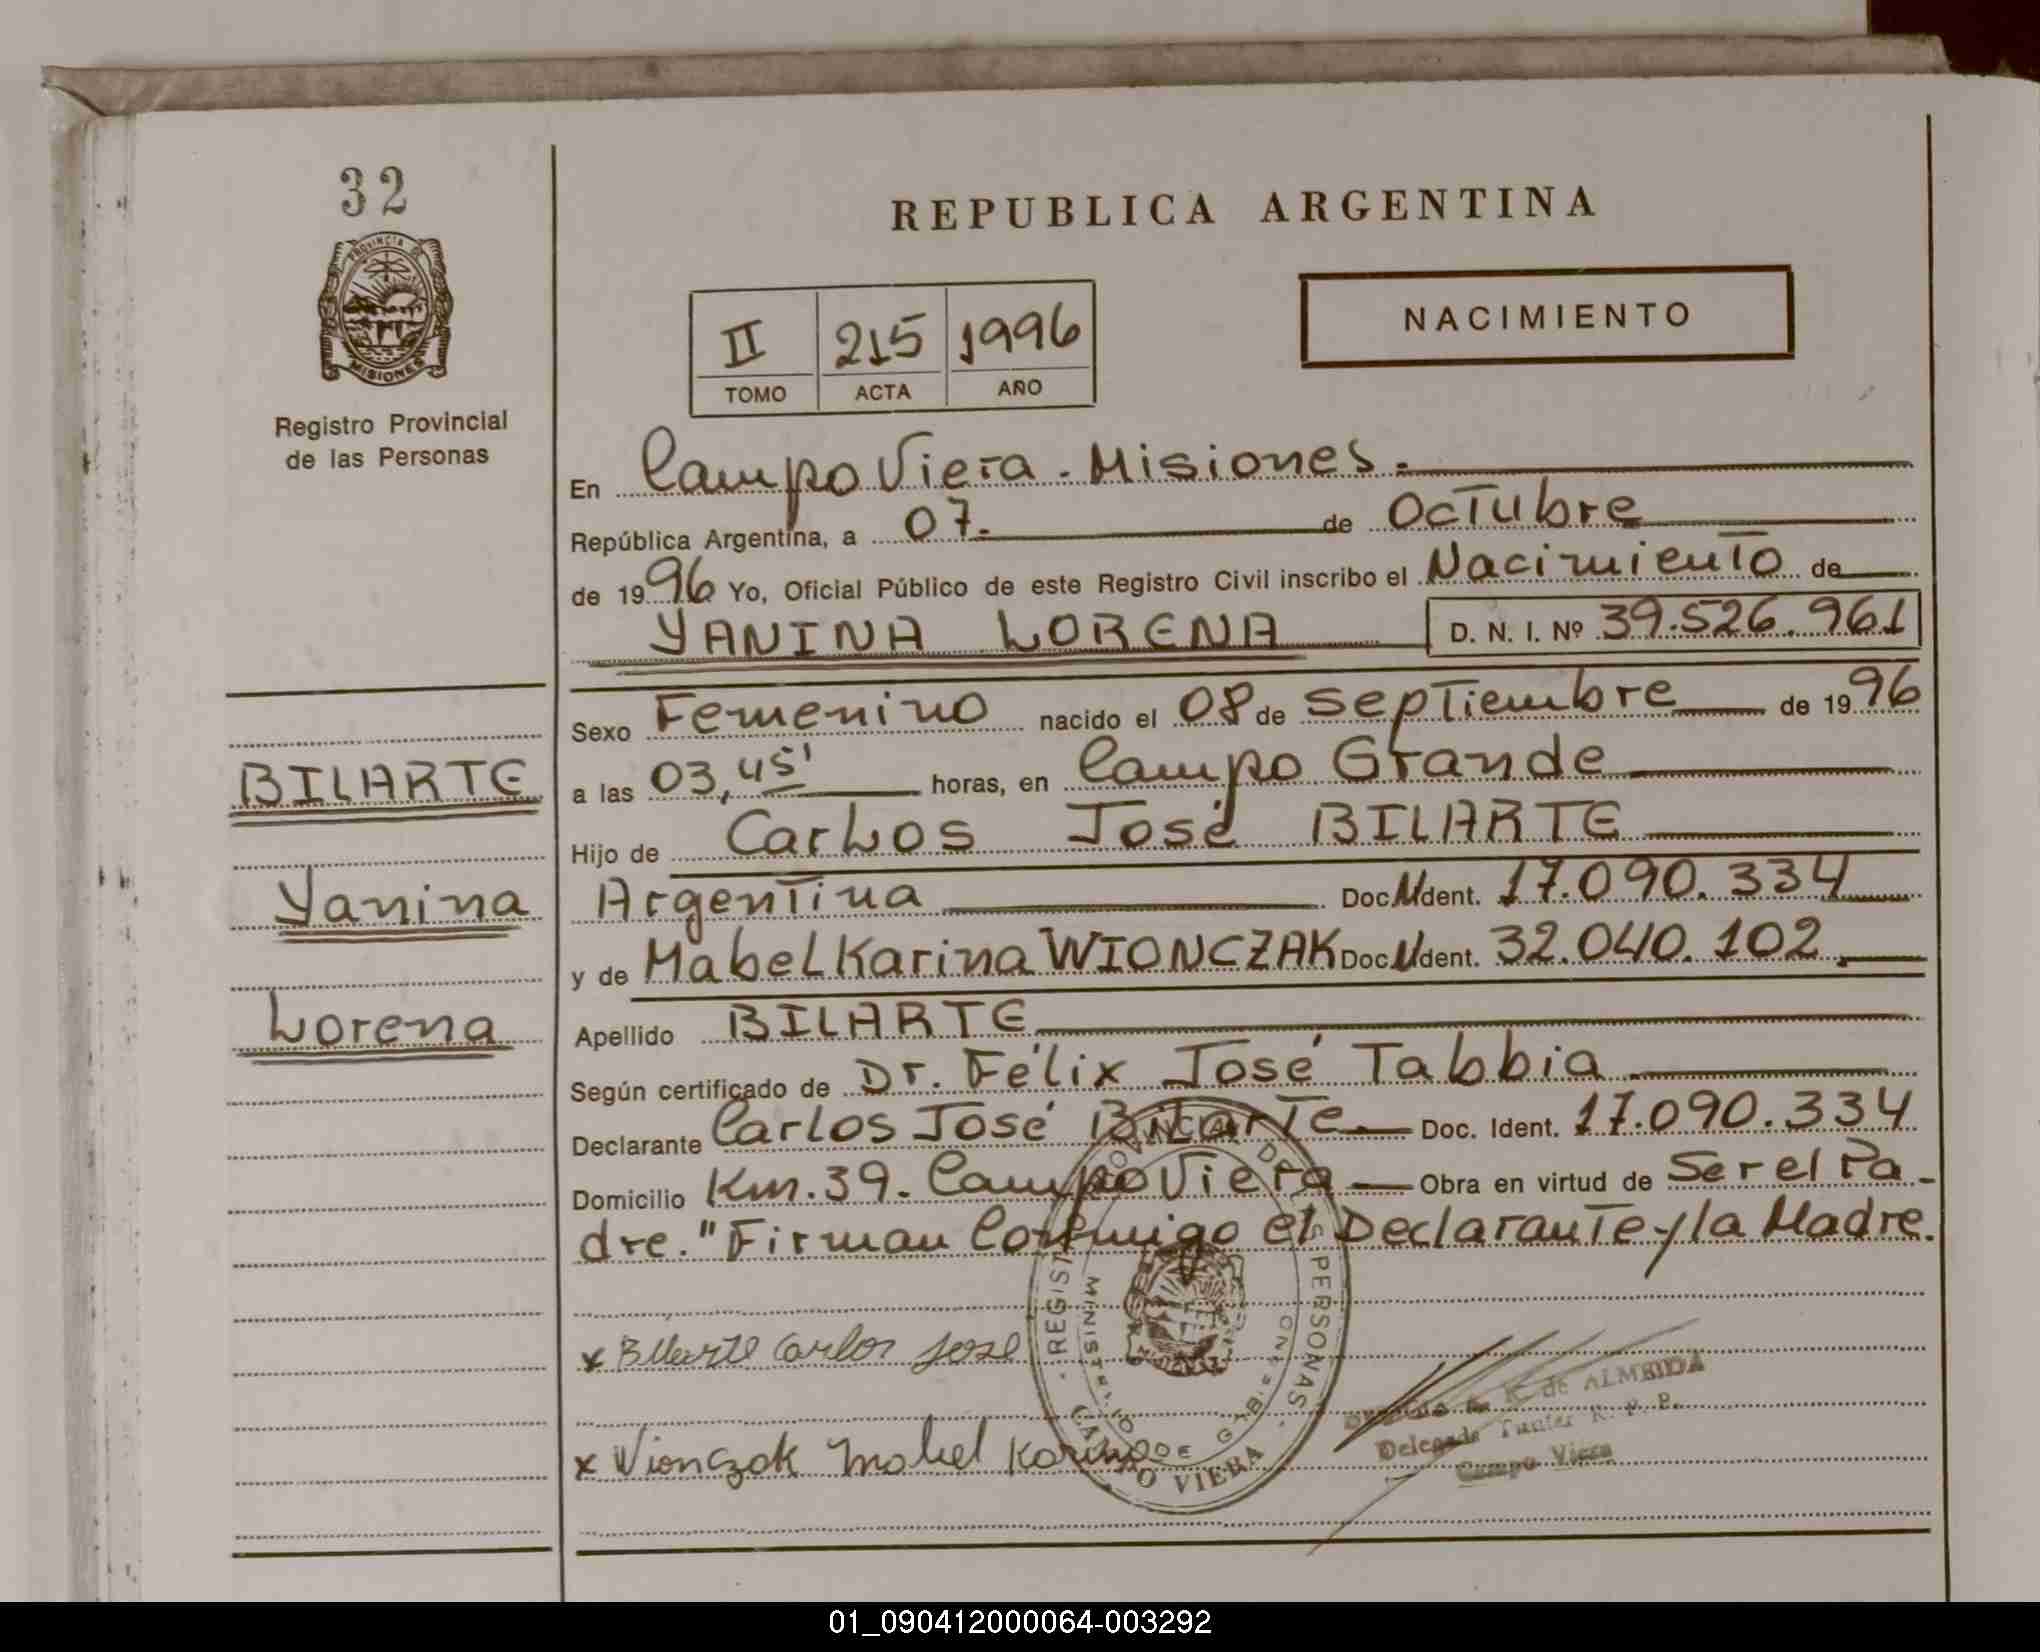 32
PROVINCIA DE
MISIONES
Registro Provincial
de las Personas
REPUBLICA ARGENTINA
II 215 1996
TOMO ACTA AÑO
NACIMIENTO
En Campo Viera - Misiones.
República Argentina, a 07. de Octubre
de 1996 Yo, Oficial Público de este Registro Civil inscribo el Nacimiento de
YANINA LORENA D. N. I. Nº 39.526.961
Sexo Femenino nacido el 08 de septiembre de 1996
a las 03,45' horas, en Campo Grande
Hijo de Carlos José BILARTE
Argentina Doc. Ident. 17.090.334
y de Mabel Karina WIONCZAK Doc. Ident. 32.040.102.
Apellido BILARTE
Según certificado de Dr. Félix José Tabbia
Declarante Carlos José Bilarte. Doc. Ident. 17.090.334
Domicilio Km. 39. Campo Viera Obra en virtud de Ser el Pa-
dre. "Firman Conmigo el Declarante y la Madre.
BILARTE
Yanina
Lorena
x Bilarte Carlos Jose
x Wionczak Mabel Karina
REGISTRO PROVINCIAL DE LAS PERSONAS
MINISTERIO DE GOBIERNO
CAMPO VIERA
de ALMEIDA
Delegada Titular R. P. P.
Campo Viera
01_090412000064-003292